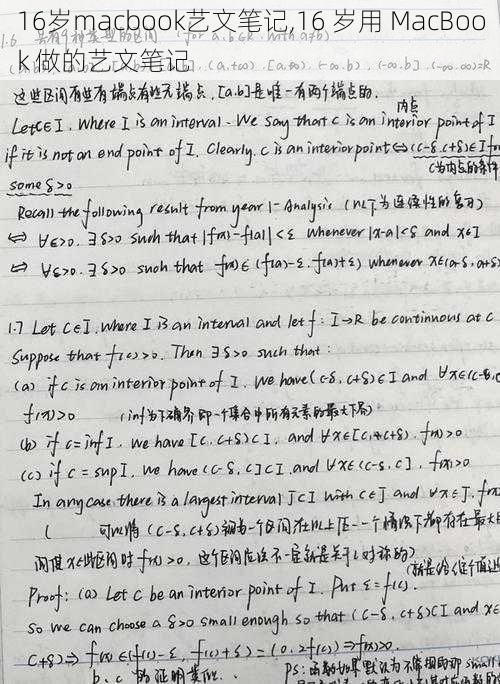 16岁macbook艺文笔记,16 岁用 MacBoo
k 做的艺文笔记
1.6 共有9种类型的区间 (for a,b∈R with a≠b)
(a,+∞) [a,+∞), (-∞,b), (-∞,b], (-∞,∞)=R
这些区间有些有端点有些无端点, [a,b]是唯一有两个端点的.
内点
Let c∈I, where I is an interval. We say that c is an interior point of I
if it is not an end point of I. Clearly, c is an interior point ⇔ (c-δ,c+δ)∈I for
some δ>0
Recall the following result from year 1 - Analysis (以下为连续性的复习)
⇔ ∀ε>0, ∃δ>0 such that |f(x)-f(a)|<ε whenever |x-a|<δ and x∈I
⇔ ∀ε>0, ∃δ>0 such that f(x)∈(f(a)-ε, f(a)+ε) whenever x∈(a-δ,a+δ)
1.7 Let c∈I, where I is an interval and let f: I→R be continuous at c
Suppose that f(c)>0. Then ∃δ>0 such that:
(a) if c is an interior point of I, we have (c-δ, c+δ)∈I and ∀x∈(c-δ,c
f(x)>0 (inf为下确界即一个集合中所有元素的最大下界)
(b) if c=inf I, we have [c,c+δ)⊂I, and ∀x∈[c,c+δ), f(x)>0
(c) if c=sup I, we have (c-δ,c]⊂I and ∀x∈(c-δ,c], f(x)>0
In any case, there is a largest interval J⊂I with c∈J and ∀x∈J, f(x
( 可以将 (c-δ,c+δ) 视为一个区间在以上任一个情况下都存在最大
间使x∈此区间时f(x)>0, 这个区间应该不一定就是关于c对称的)
Proof: (a) Let c be an interior point of I. Put ε=f(c).
So we can choose a δ>0 small enough so that (c-δ, c+δ)⊂I and x∈
c+δ) ⇒ f(x)∈(f(c)-ε, f(c)+ε)=(0,2f(c)) ⇒ f(x)>0.
b, c 的证明类似.